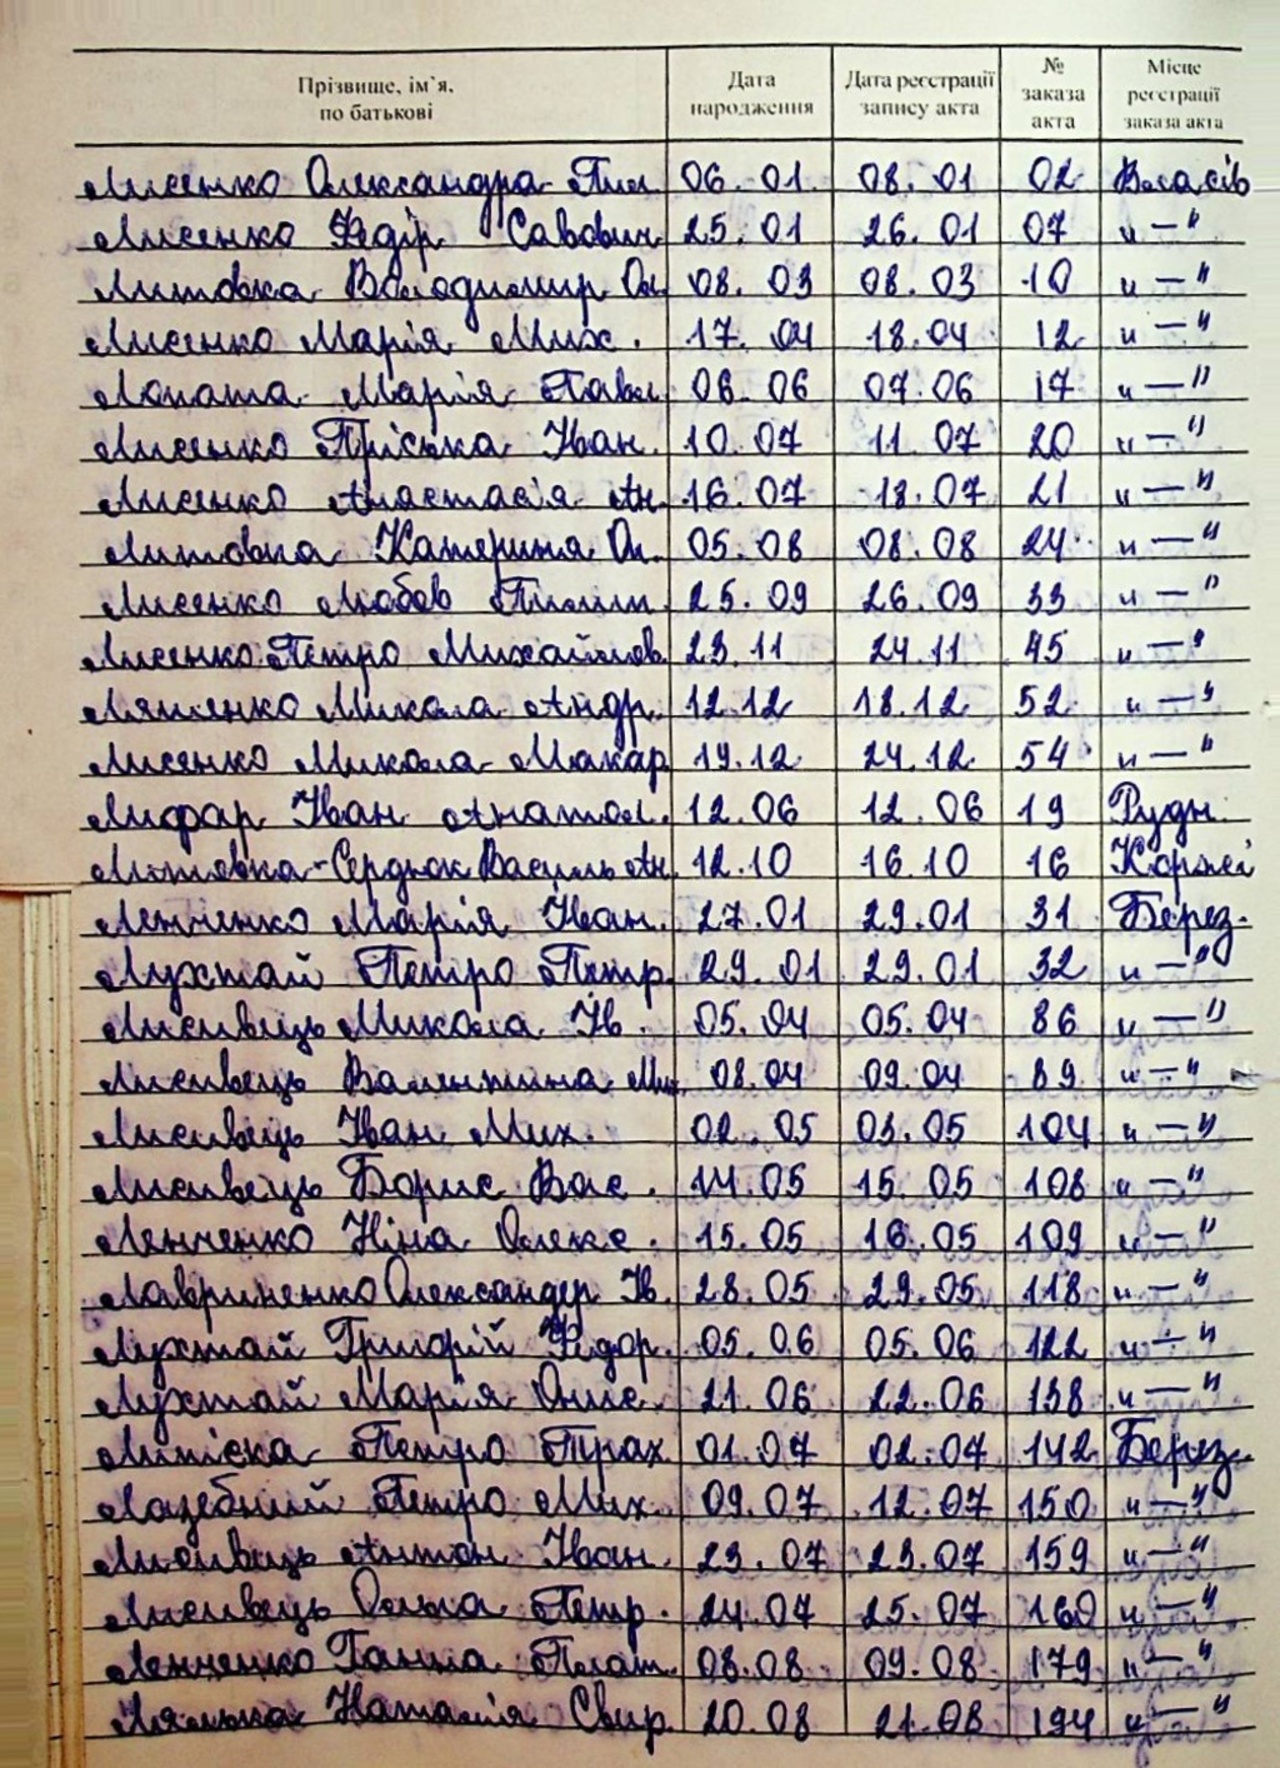 Прізвище, ім`я, по батькові Дата народження Дата реєстрації запису акта № заказа акта Місце реєстрації заказа акта
Лисенко Олександра Пил. 06.01. 08.01 02 Власів
Лисенко Федір Савович 25.01 26.01 07 " — "
Литовка Володимир Ол. 08.03 08.03 10 " — "
Лисенко Марія Мих. 17.04 18.04 12 " — "
Лопата Марія Павл. 06.06 07.06 17 " — "
Лисенко Пріська Іван. 10.07 11.07 20 " — "
Лисенко Анастасія Ан. 16.07 18.07 21 " — "
Литовка Катерина Ол. 05.08 08.08 24 " — "
Лисенко Любов Пилип. 25.09 26.09 33 " — "
Лисенко Петро Михайлов. 23.11 24.11 45 " — "
Ляшенко Микола Андр. 12.12 18.12 52 " — "
Лисенко Микола Макар. 19.12 24.12 54 " — "
Лифар Іван Анатол. 12.06 12.06 19 Рудн.
Литовка-Сердюк Василь Ан. 12.10 16.10 16 Коржі
Ленченко Марія Іван. 27.01 29.01 31 Берез.
Лухтай Петро Петр. 29.01 29.01 32 " — "
Лисивець Микола Ів. 05.04 05.04 86 " — "
Лисивець Валентина Мих. 08.04 09.04 89 " — "
Лисивець Іван Мих. 02.05 03.05 104 " — "
Лисивець Борис Вас. 14.05 15.05 108 " — "
Ленченко Ніна Олекс. 15.05 16.05 109 " — "
Лавриненко Олександер Ів. 28.05 29.05 118 " — "
Лухтай Григорій Федор. 05.06 05.06 122 " — "
Лухтай Марія Онис. 21.06 22.06 138 " — "
Липіска Петро Трах. 01.07 02.07 142 Берез.
Лазебний Петро Мих. 09.07 12.07 150 " — "
Лисивець Антон Іван. 23.07 23.07 159 " — "
Лисивець Ольга Петр. 24.07 25.07 160 " — "
Ленченко Ганна Плат. 08.08 09.08 179 " — "
Лялька Наталія Свир. 20.08 21.08 194 " — "